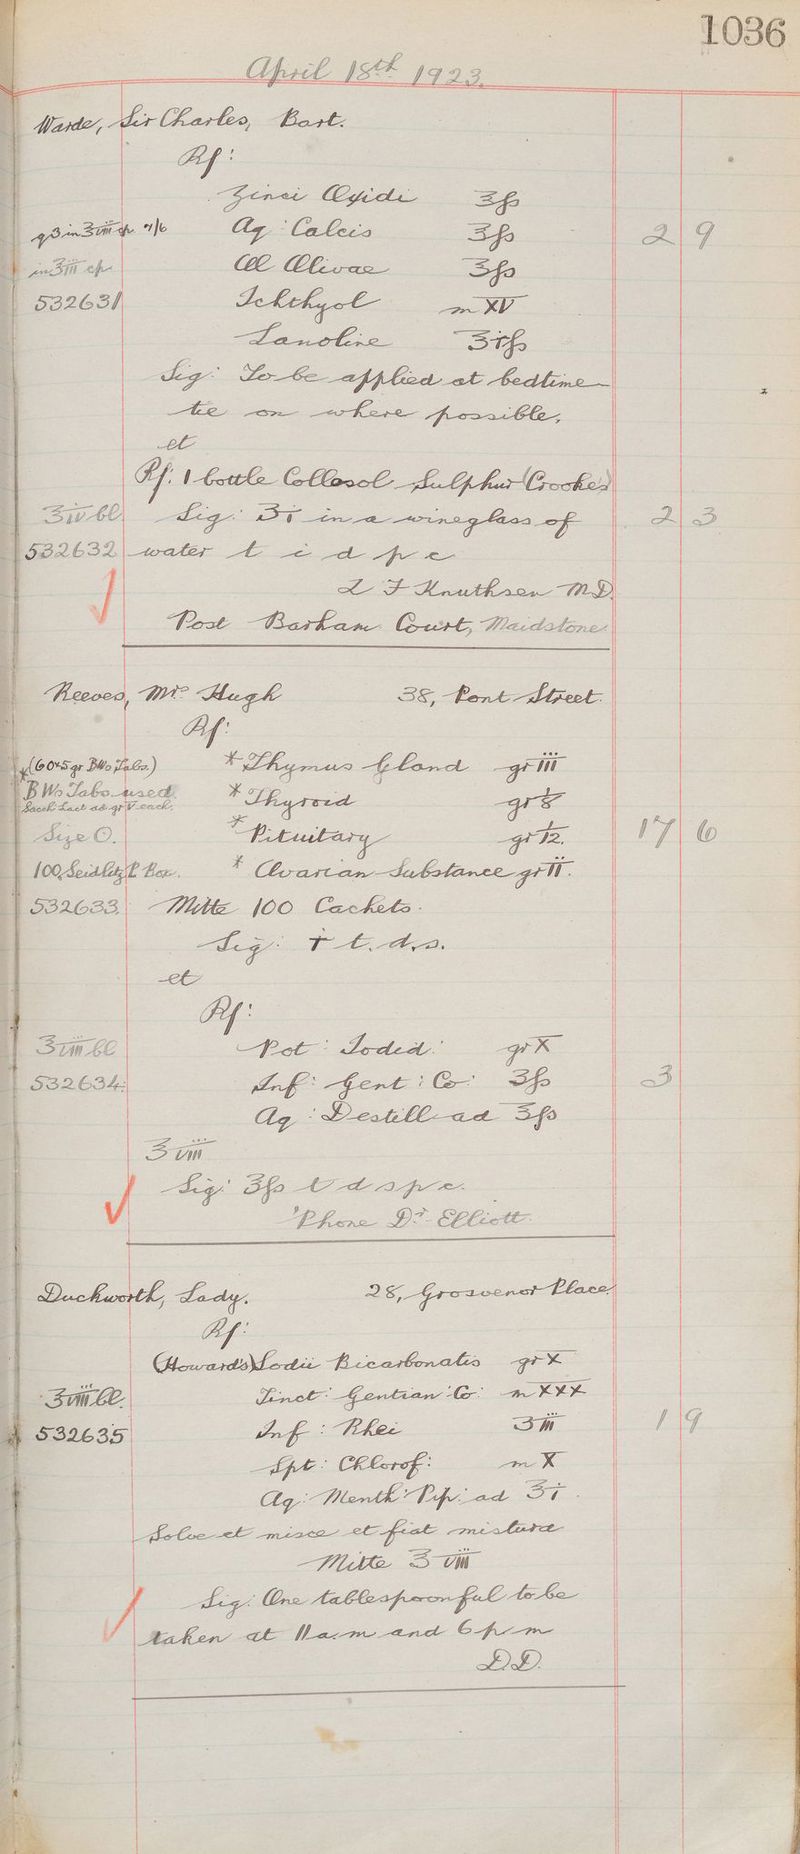 1036
April 18th 1923.
Warde, Sir Charles, Bart.
Rf:
Zinci Oxidi ʒfs
Aq: Calcis ʒfs
2 9
in ʒiii cp
Ol Olivae ʒfs
532631 Ichthyol m XV
Lanoline ʒifs
Sig: To be applied at bedtime
tie on where possible.
et
Rf: 1 bottle Collosol Sulphur (Crookes)
ʒiv bl Sig: ʒi in a wineglass of 2 3
532632 water t i d p c
L F Knuthsen M.D.
Post Barham Court, Maidstone
Reeves, Mrs Hugh 38, Pont Street.
Rf:
*(60 x 5 gr BWs Tabs.) * Thymus Gland gr iii
BWs Tabs used. * Thyroid gr 1/8
Sacch Lact ad gr V each.
Size O. * Pituitary gr 1/12. 17 6
100, Seidlitz P. Box. * Ovarian Substance gr ii.
532633. Mitte 100 Cachets.
Sig: i t.d.s.
et
Rf:
ʒviii bl Pot: Iodid: gr X
532634: Inf: Gent: Co: ʒfs 3
Aq: Destill ad ʒfs
ʒviii
Sig: ʒfs t d s p c.
'Phone Dr Elliott.
Duckworth, Lady. 28, Grosvenor Place.
Rf:
(Howard's) Sodii Bicarbonatis gr X
ʒviii bl. Tinct: Gentian: Co: m XXX
532635 Inf: Rhei ʒiii 1 9
Spt: Chlorof: m X
Aq: Menth: Pip: ad ʒi.
Solve et misce et fiat mistura
Mitte ʒviii
Sig: One tablespoonful to be
taken at 11 a.m and 6 p.m
D.D.